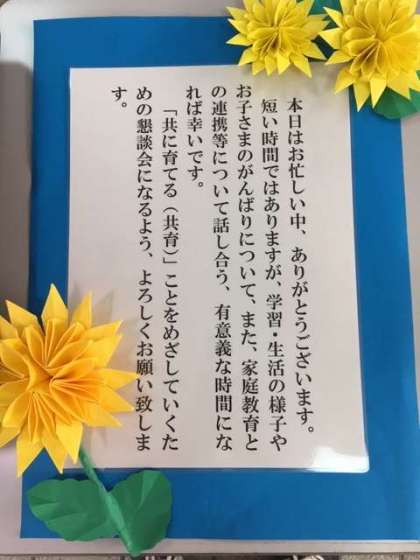 本日はお忙しい中、ありがとうございます。
短い時間ではありますが、学習・生活の様子や
お子さまのがんばりについて、また、家庭教育と
の連携等について話し合う、有意義な時間にな
れば幸いです。
「共に育てる（共育）」ことをめざしていくた
めの懇談会になるよう、よろしくお願い致しま
す。